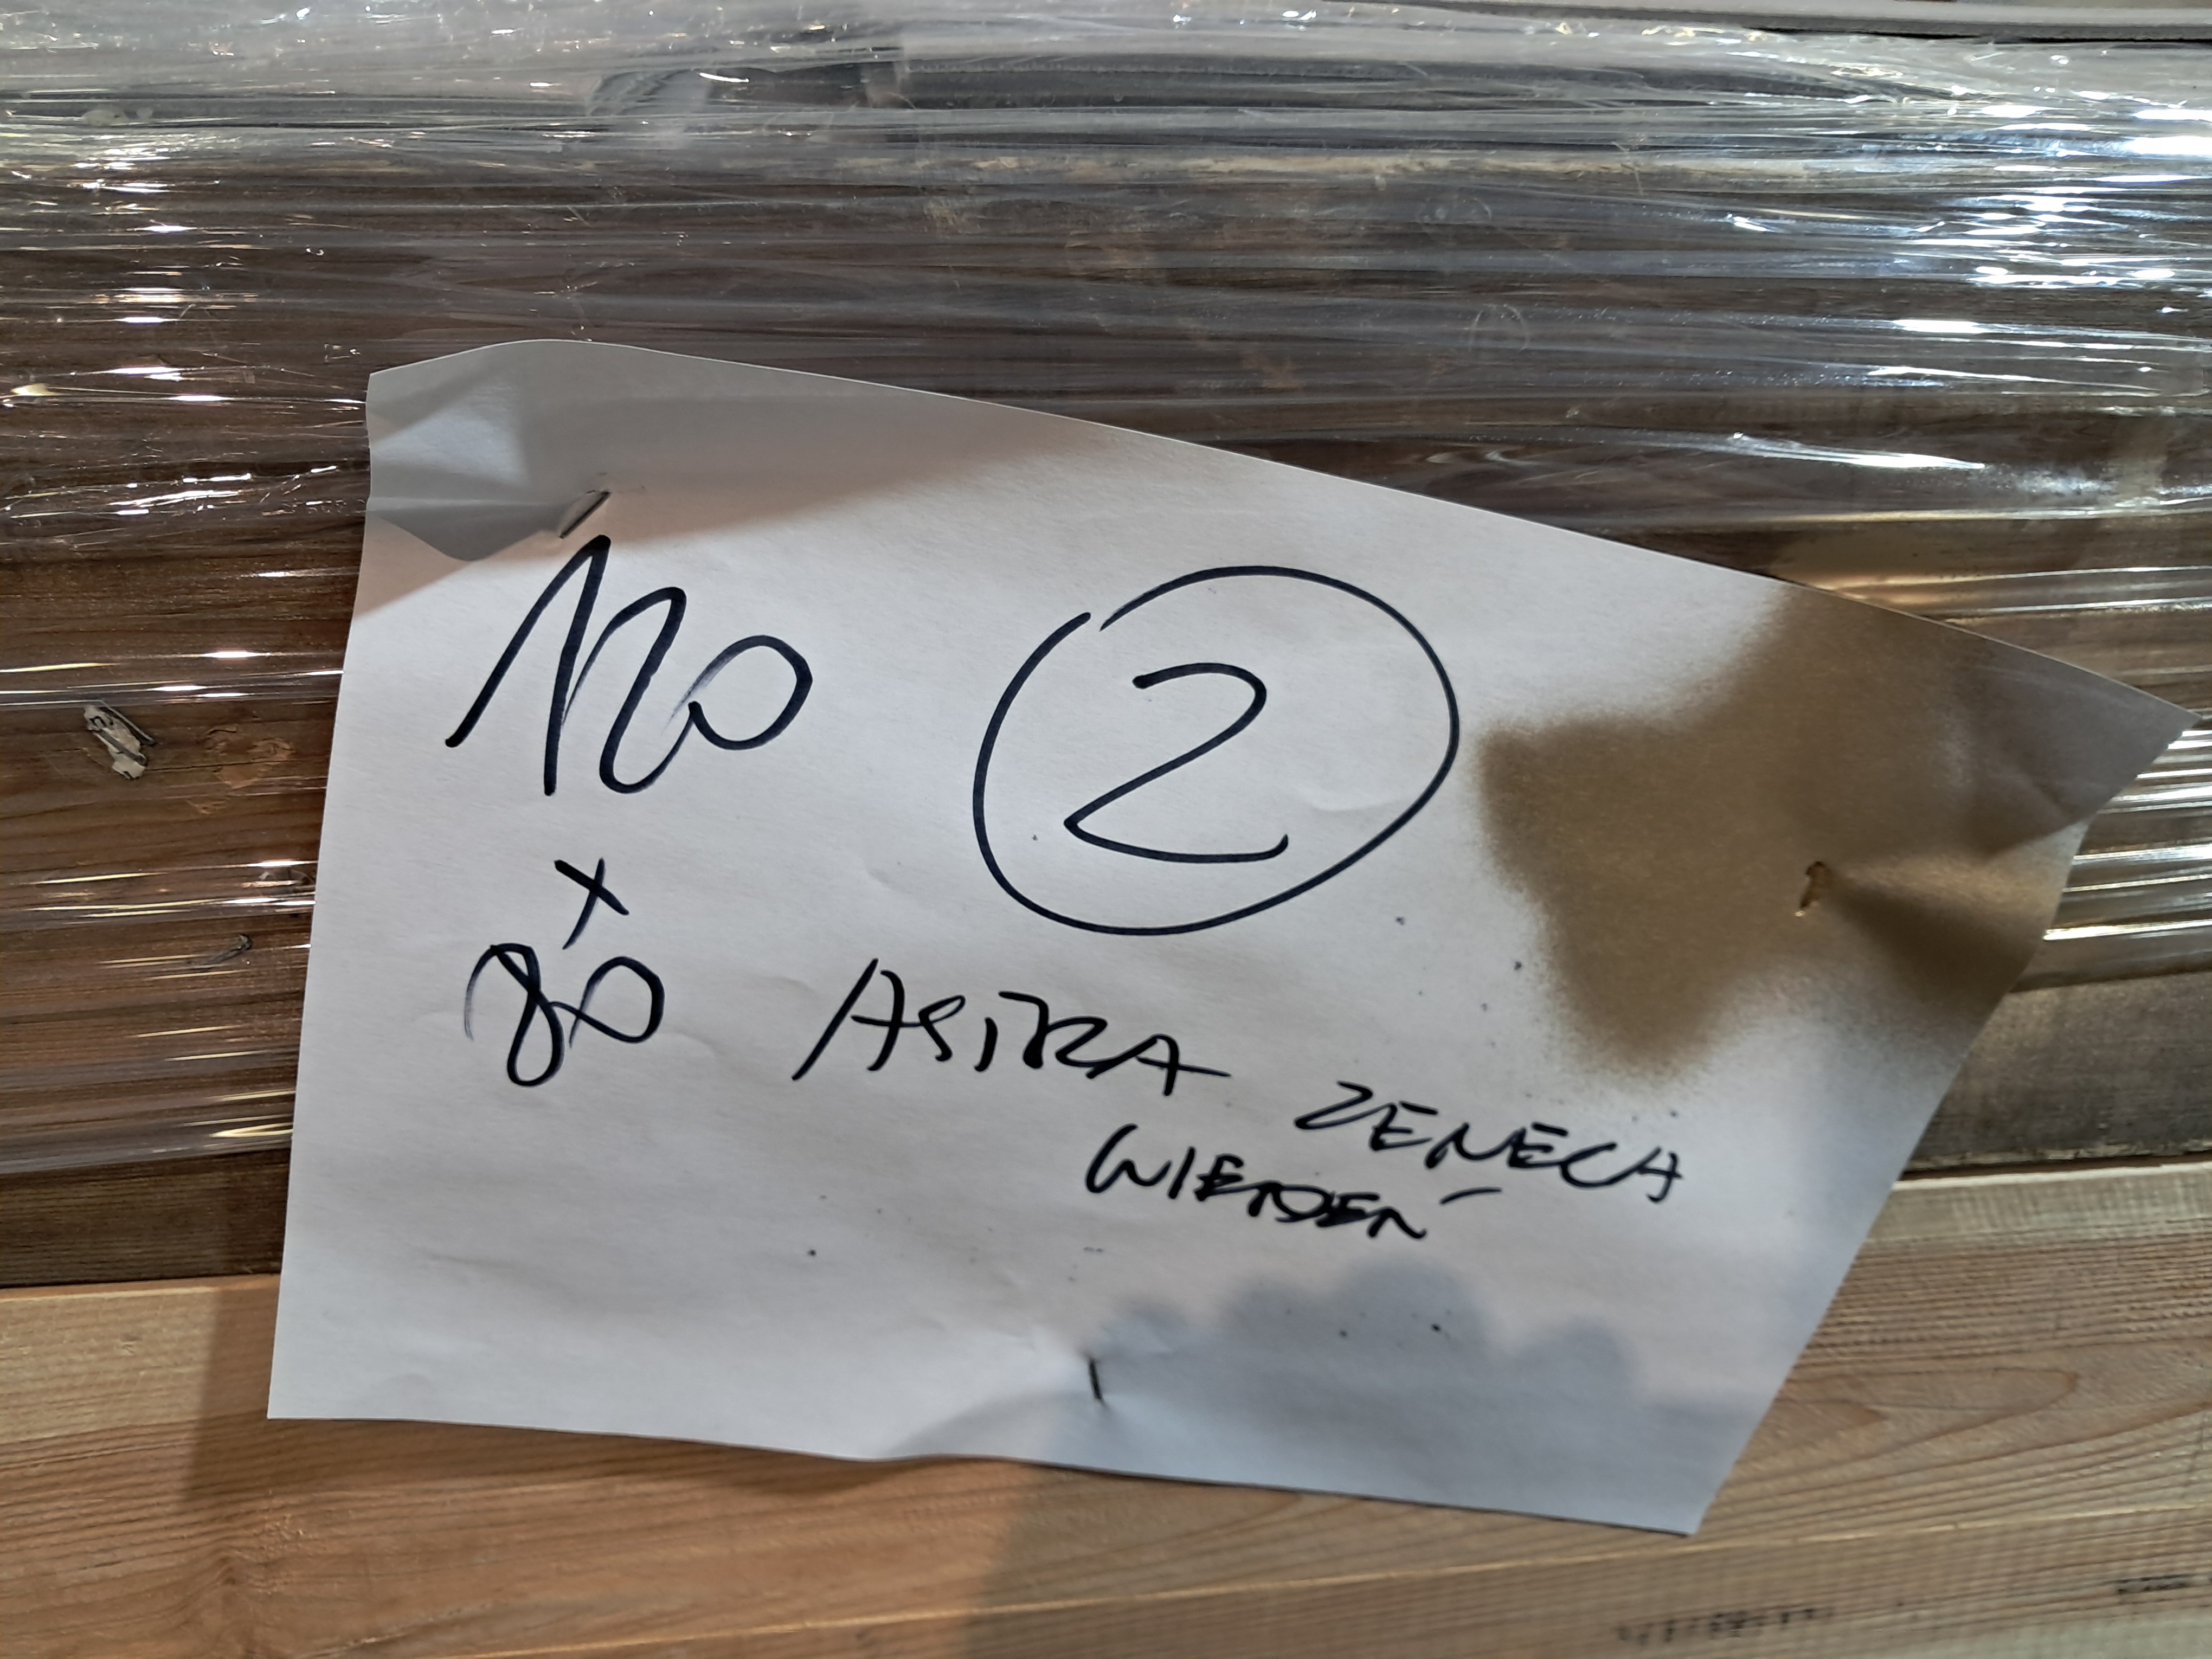 120
x
80
2
ASTRA ZENECA
WIEDEŃ